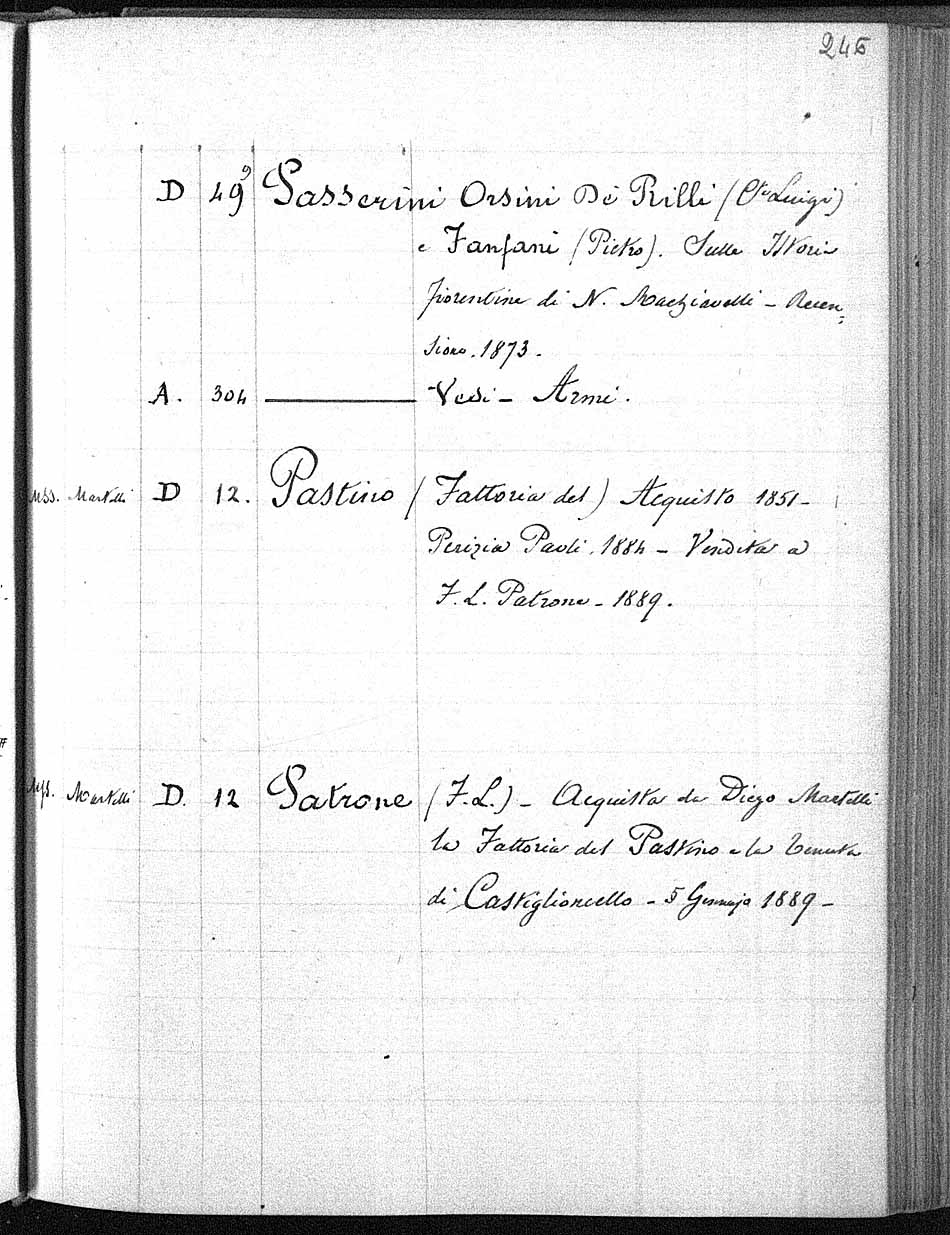 246
D 49⁹ Passerini Orsini De Rilli (Cte Luigi)
e Fanfani (Pietro). Sulle Istorie
fiorentine di N. Machiavelli - Recen=
sione. 1873.
A. 304 ——— Vedi - Armi.
Mss. Martelli D 12. Pastino (Fattoria del) Acquisto 1851 -
Perizia Paoli. 1884 - Vendita a
F. L. Patrone - 1889.
Mss. Martelli D. 12 Patrone (F. L.) - Acquista da Diego Martelli
la Fattoria del Pastino e la Tenuta
di Castiglioncello - 5 Gennajo 1889 -